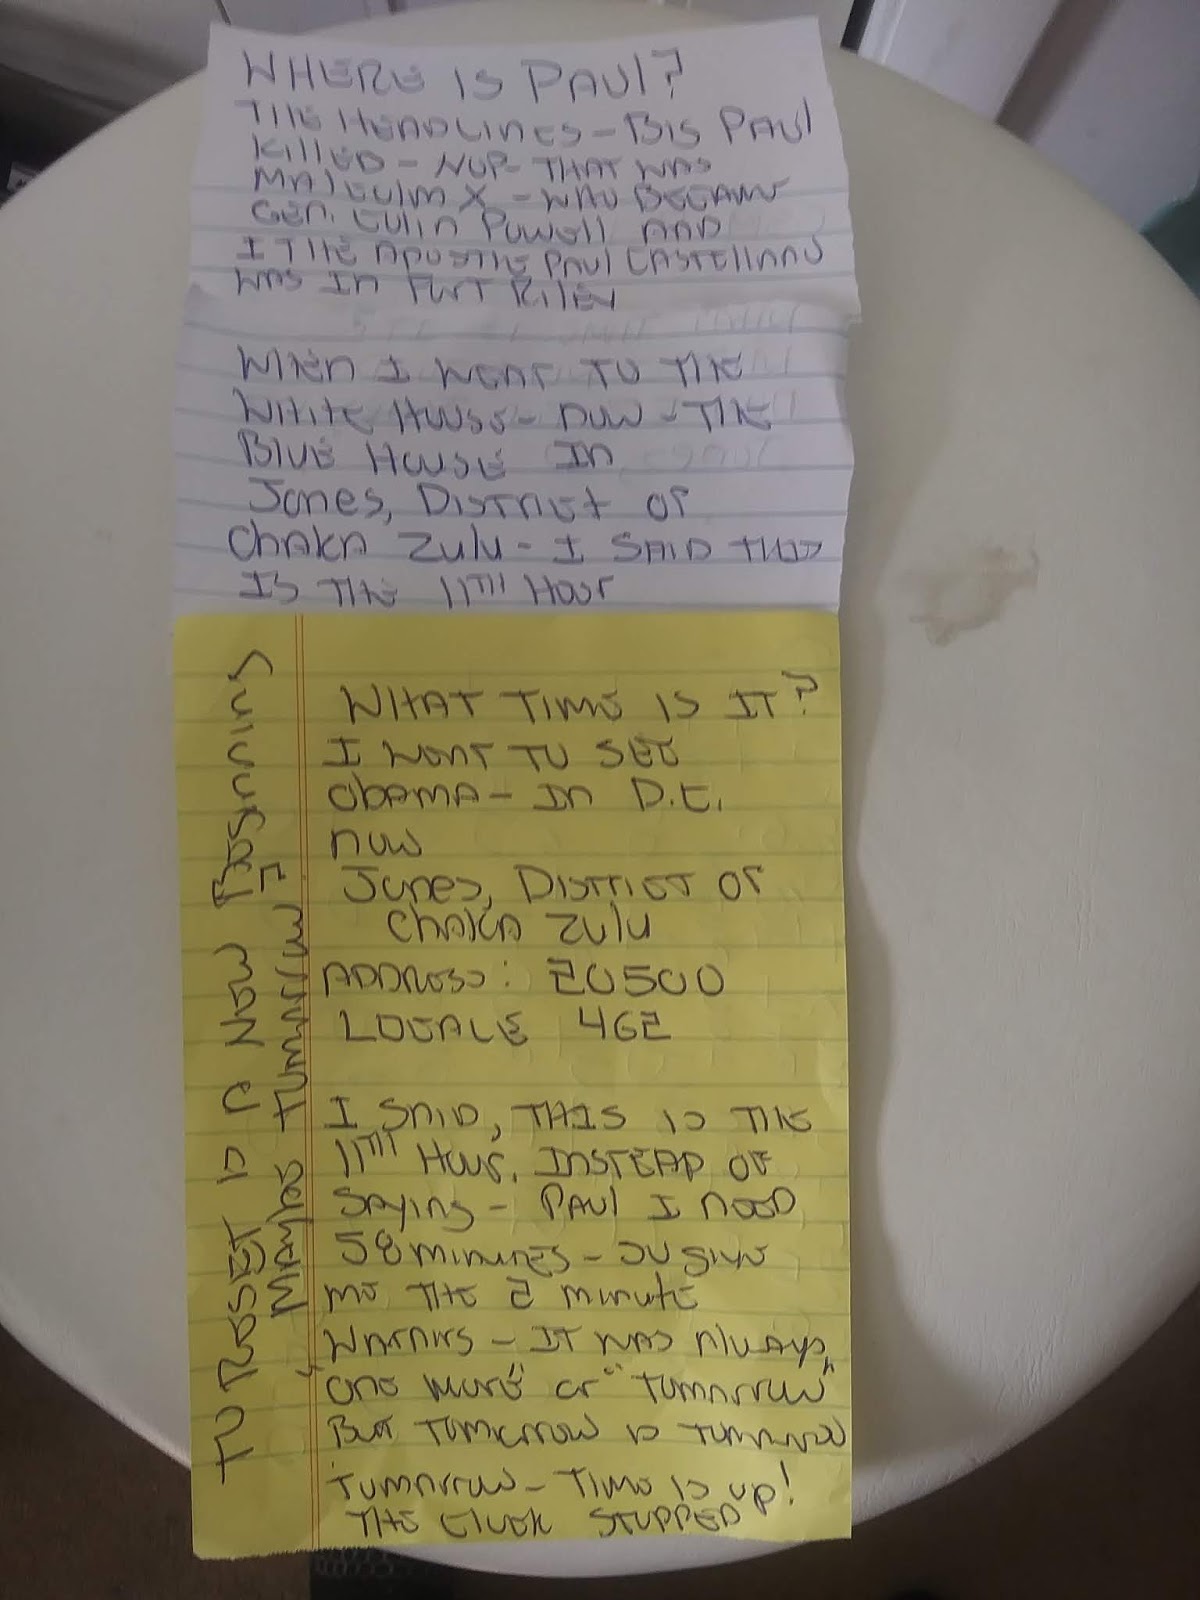 WHERE IS PAUL?
THE HEADLINES - BIG PAUL
KILLED - NOP THAT WAS
MALCOLM X - WHO BECAME
GEN. COLIN POWELL AND
I THE APOSTLE PAUL CASTELLANO
WAS IN FORT RILEY
WHEN I WENT TO THE
WHITE HOUSE - NOW - THE
BLUE HOUSE IN
JONES, DISTRICT OF
CHAKA ZULU - I SAID THIS
IS THE 11TH HOUR
WHAT TIME IS IT?
I WENT TO SEE
OBAMA - IN D.C.
NOW
JONES, DISTRICT OF
CHAKA ZULU
ADDRESS: 20500
LOCALE 462
I SAID, THIS IS THE
11TH HOUR. INSTEAD OF
SAYING - PAUL I NEED
58 MINUTES - SO GIVE
ME THE 2 MINUTE
WARNING - IT WAS ALWAYS,
"ONE MORE" OR "TOMORROW"
BUT TOMORROW IS TOMORROW
TOMORROW - TIME IS UP!
THE CLOCK STOPPED
TO RESET IS A NOW BEGINNING
MAYBE TOMORROW?